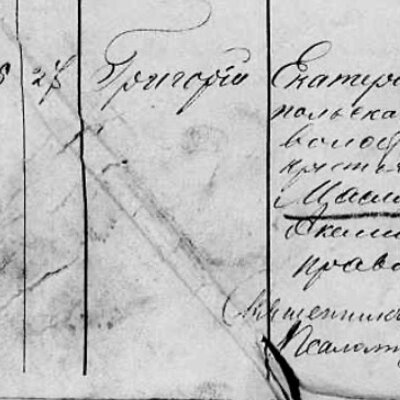 8 27 Григорiй Екатери
польска
волос
крестья
Масл
Іакин
право
Священник
Псалом